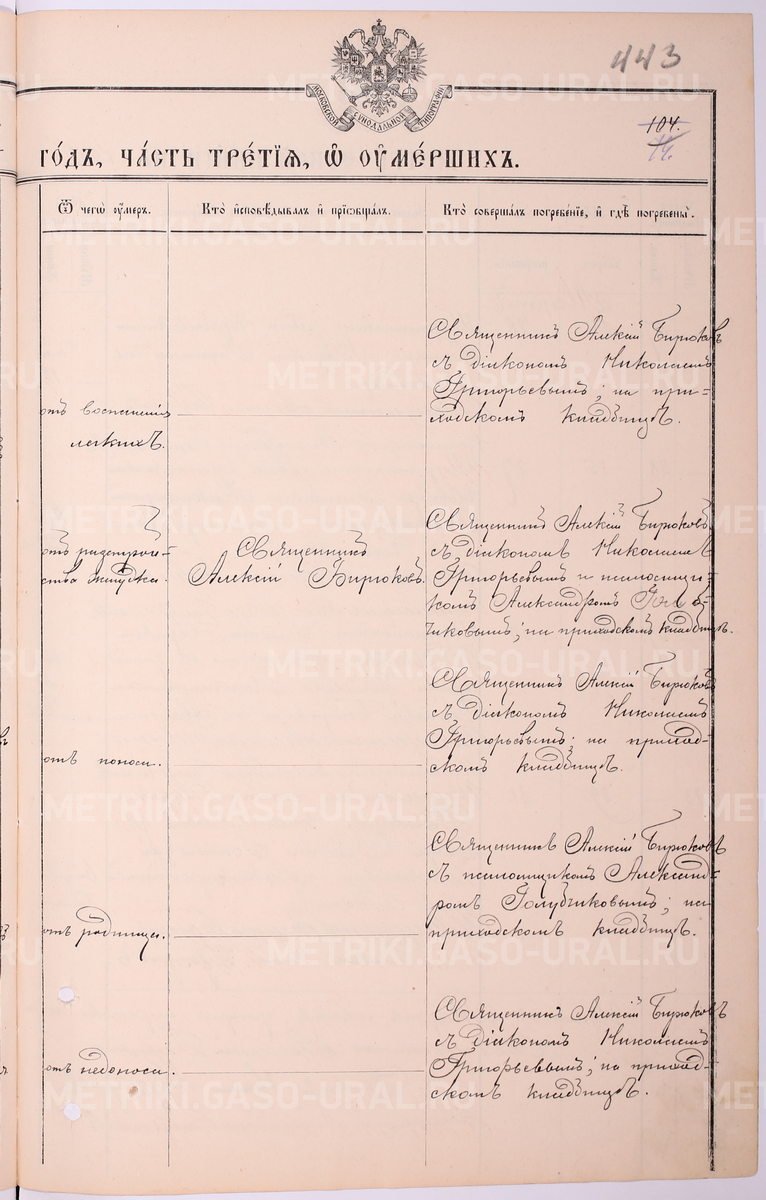 443
МОСКОВСКОЙ СѴНОДАЛЬНОЙ ТИПОГРАФІИ
104.
14.
го́дъ, ча́сть тре́тїѧ, ѡ҆ ᲂу҆ме́ршихъ.
Ѿ чегѡ̀ ᲂу҆́меръ.
Кто̀ и҆сповѣ́дывалъ и҆ прїѡбща́лъ.
Кто̀ соверша́лъ погребе́нїе, и҆ гдѣ̀ погребены̀.
отъ воспаленія
легкихъ.
Священникъ Алексій Бирюковъ
съ діакономъ Николаемъ
Григорьевымъ; на при-
ходскомъ кладбищѣ.
отъ разстрой-
ства желудка.
Священникъ
Алексій Бирюковъ.
Священникъ Алексій Бирюковъ
съ діакономъ Николаемъ
Григорьевымъ и псаломщи-
комъ Александромъ Голуб-
чиковымъ; на приходскомъ кладбищѣ.
отъ поноса.
Священникъ Алексій Бирюковъ
съ діакономъ Николаемъ
Григорьевымъ; на приход-
скомъ кладбищѣ.
отъ родимца.
Священникъ Алексій Бирюковъ
съ псаломщикомъ Александ-
ромъ Голубчиковымъ; на
приходскомъ кладбищѣ.
отъ недоноса.
Священникъ Алексій Бирюковъ
съ діакономъ Николаемъ
Григорьевымъ; на приход-
скомъ кладбищѣ.
METRIKI.GASO-URAL.RU